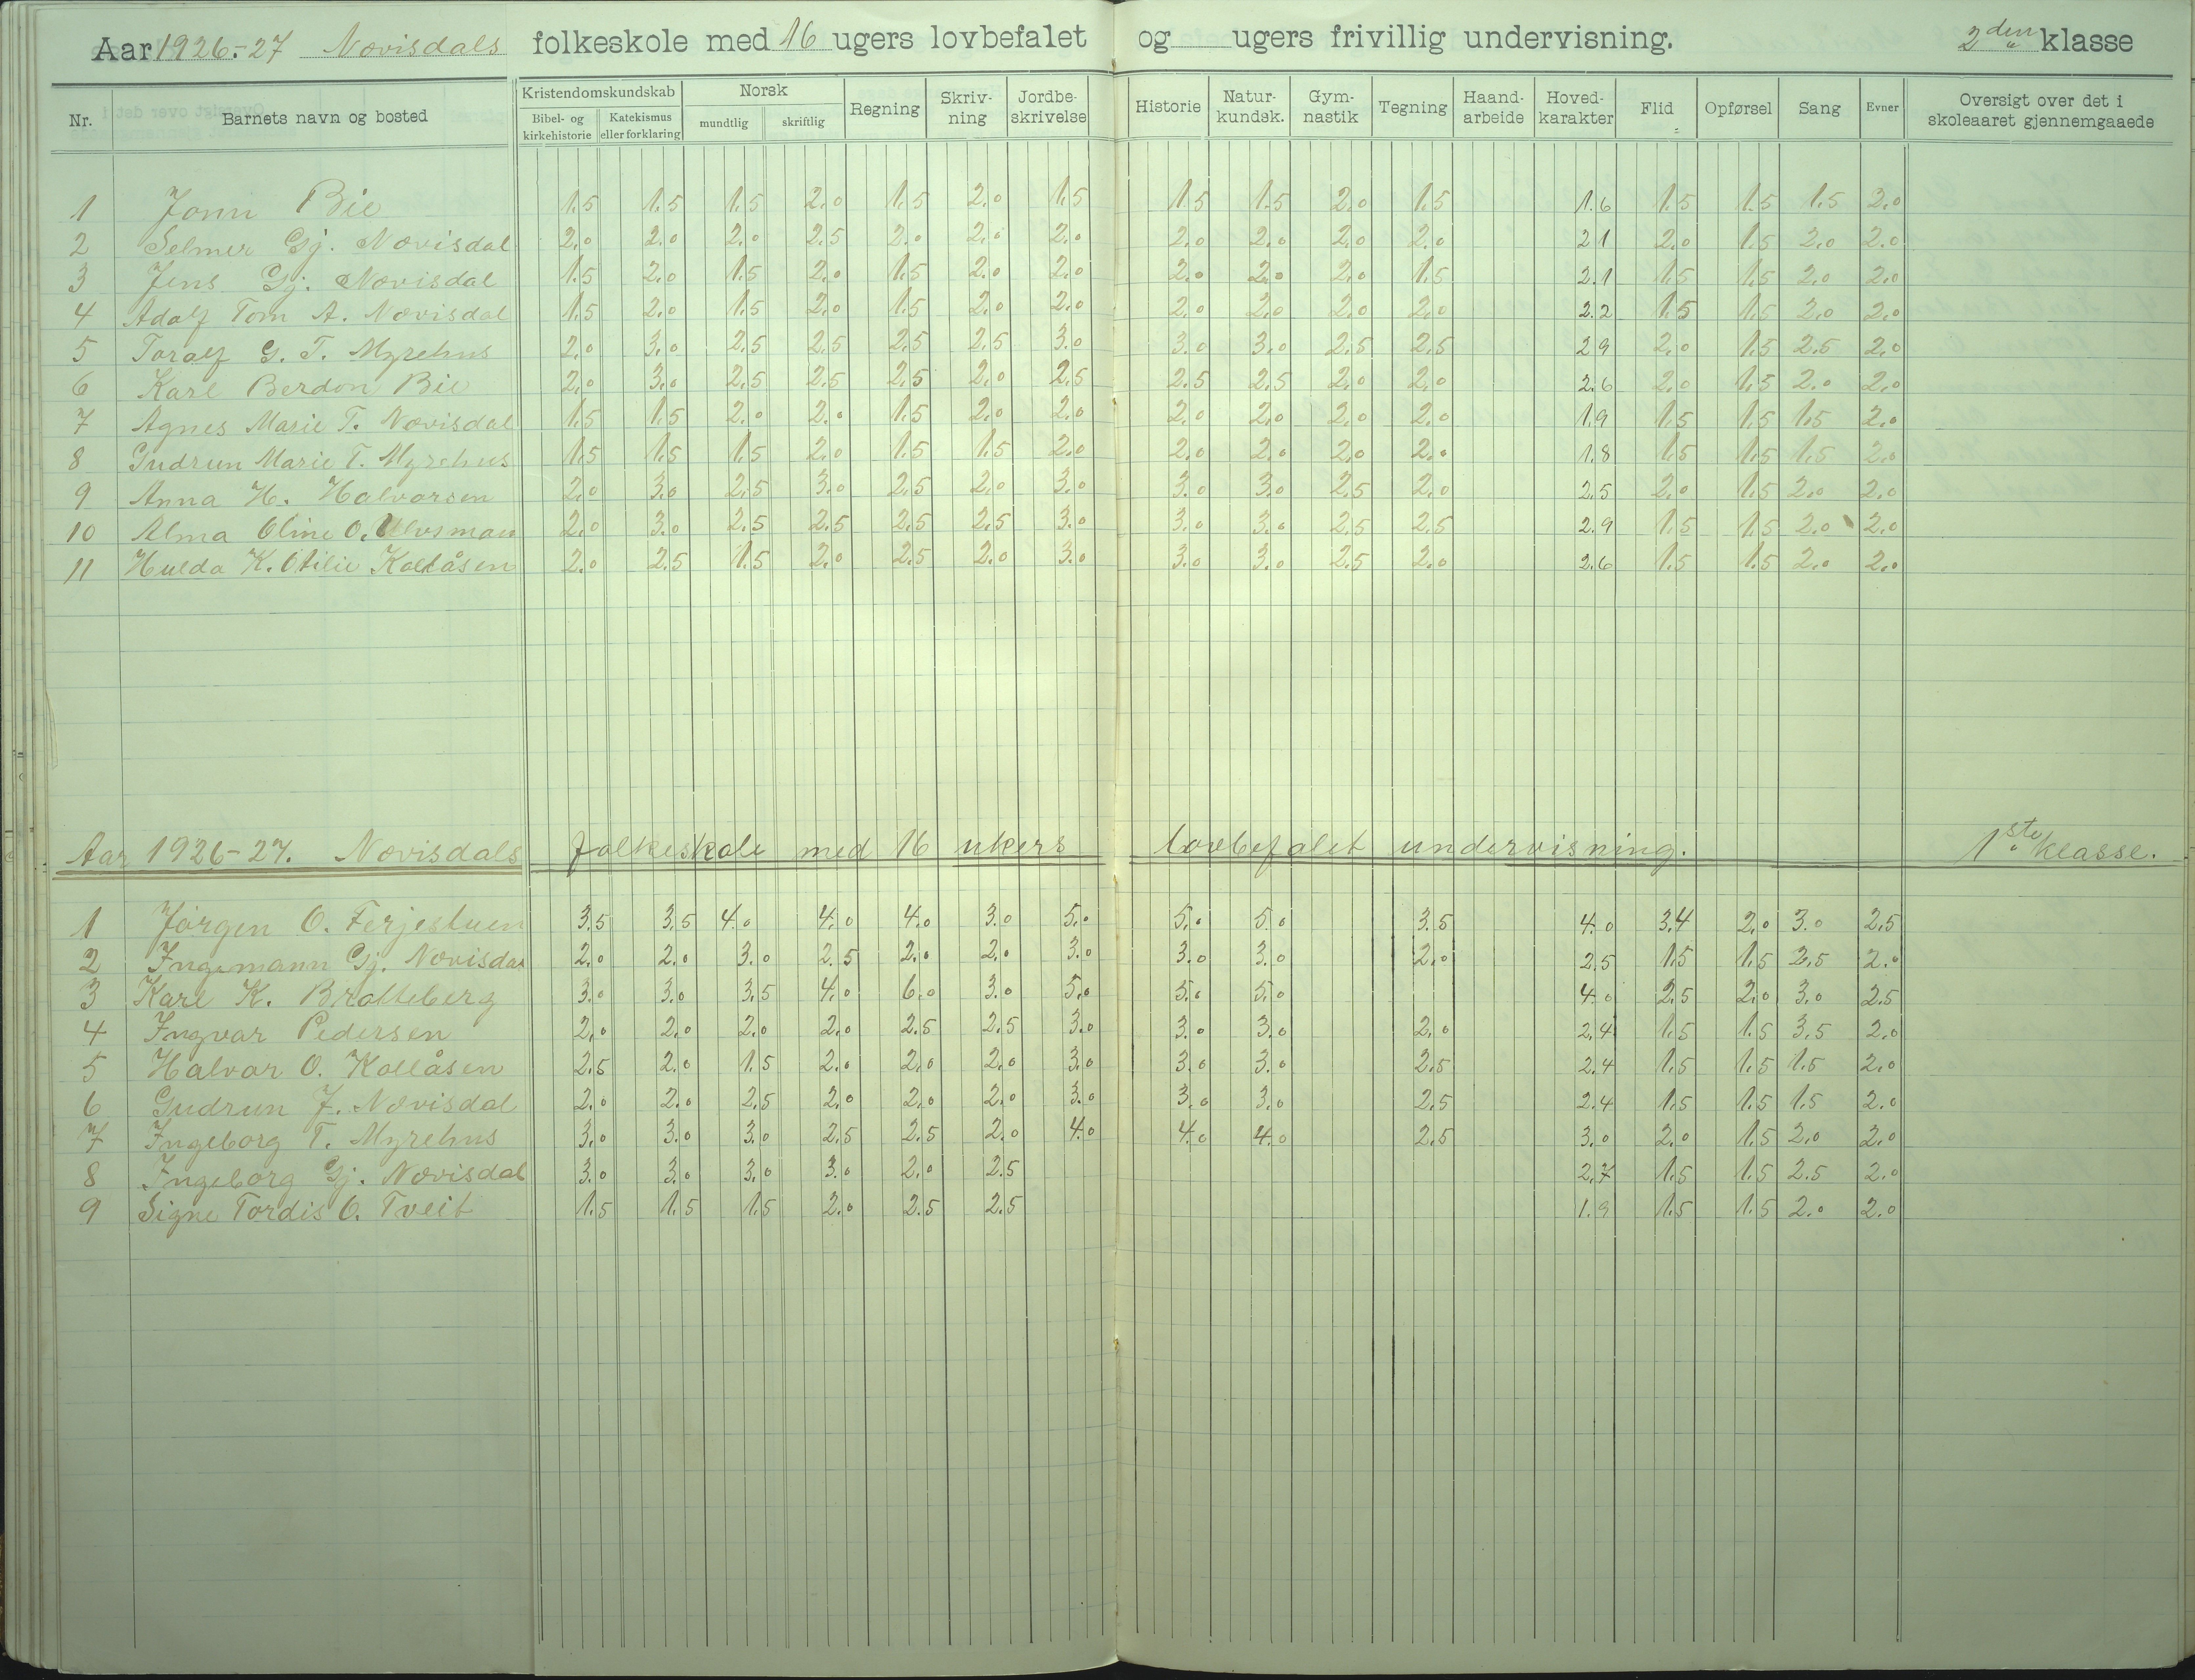 Aar 1926.-27 Novisdals folkeskole med 16 ugers lovbefalet og ugers frivillig undervisning. 2den klasse
Nr. Barnets navn og bosted Kristendomskundskab Bibel- og kirkehistorie Katekismus eller forklaring Norsk mundtlig skriftlig Regning Skriv-ning Jordbe-skrivelse Historie Natur-kundsk. Gym-nastik Tegning Haand-arbeide Hoved-karakter Flid Opførsel Sang Evner Oversigt over det i skoleaaret gjennemgaaede
1 Jonn Bie 1.5 1.5 1.5 2.0 1.5 2.0 1.5 1.5 1.5 2.0 1.5 1.6 1.5 1.5 1.5 2.0
2 Selmer Gj. Novisdal 2.0 2.0 2.0 2.5 2.0 2.0 2.0 2.0 2.0 2.0 2.0 2.1 2.0 1.5 2.0 2.0
3 Jens Gj. Novisdal 1.5 2.0 1.5 2.0 1.5 2.0 2.0 2.0 2.0 2.0 1.5 2.1 1.5 1.5 2.0 2.0
4 Adolf Tom A. Novisdal 1.5 2.0 1.5 2.0 1.5 2.0 2.0 2.0 2.0 2.0 2.0 2.2 1.5 1.5 2.0 2.0
5 Toralf G. T. Myrehus 2.0 3.0 2.5 2.5 2.5 2.5 3.0 3.0 3.0 2.5 2.5 2.9 2.0 1.5 2.5 2.0
6 Karl Berdon Bie 2.0 3.0 2.5 2.5 2.5 2.0 2.5 2.5 2.5 2.0 2.0 2.6 2.0 1.5 2.0 2.0
7 Agnes Marie T. Novisdal 1.5 1.5 2.0 2.0 1.5 2.0 2.0 2.0 2.0 2.0 2.0 1.9 1.5 1.5 1.5 2.0
8 Gudrun Marie T. Myrehus 1.5 1.5 1.5 2.0 1.5 1.5 2.0 2.0 2.0 2.0 2.0 1.8 1.5 1.5 1.5 2.0
9 Anna H. Halvorsen 2.0 3.0 2.5 3.0 2.5 2.0 3.0 3.0 3.0 2.5 2.0 2.5 2.0 1.5 2.0 2.0
10 Alma Oline O. Ulvsman 2.0 3.0 2.5 2.5 2.5 2.5 3.0 3.0 3.0 2.5 2.5 2.9 1.5 1.5 2.0 2.0
11 Hulda K. Otilie Kollåsen 2.0 2.5 1.5 2.0 2.5 2.0 3.0 3.0 3.0 2.5 2.0 2.6 1.5 1.5 2.0 2.0
Aar 1926-27. Novisdals folkeskole med 16 ukers lovbefalet undervisning. 1ste klasse.
1 Jörgen O. Ferjestuen 3.5 3.5 4.0 4.0 4.0 3.0 5.0 5.0 5.0 3.5 4.0 3.4 2.0 3.0 2.5
2 Ingemann Gj. Novisdal 2.0 2.0 3.0 2.5 2.0 2.0 3.0 3.0 3.0 2.0 2.5 1.5 1.5 2.5 2.0
3 Karl K. Bratteberg 3.0 3.0 3.5 4.0 6.0 3.0 5.0 5.0 5.0 4.0 2.5 2.0 3.0 2.5
4 Ingvar Pedersen 2.0 2.0 2.0 2.0 2.5 2.5 3.0 3.0 3.0 2.0 2.4 1.5 1.5 3.5 2.0
5 Halvor O. Kollåsen 2.5 2.0 1.5 2.0 2.0 2.0 3.0 3.0 3.0 2.5 2.4 1.5 1.5 1.5 2.0
6 Gudrun J. Novisdal 2.0 2.0 2.5 2.0 2.0 2.0 3.0 3.0 3.0 2.5 2.4 1.5 1.5 1.5 2.0
7 Ingeborg T. Myrehus 3.0 3.0 3.0 2.5 2.5 2.0 4.0 4.0 4.0 2.5 3.0 2.0 1.5 2.0 2.0
8 Ingeborg Gj. Novisdal 3.0 3.0 3.0 3.0 2.0 2.5 2.7 1.5 1.5 2.5 2.0
9 Signe Tordis O. Tveit 1.5 1.5 1.5 2.0 2.5 2.5 1.9 1.5 1.5 2.0 2.0